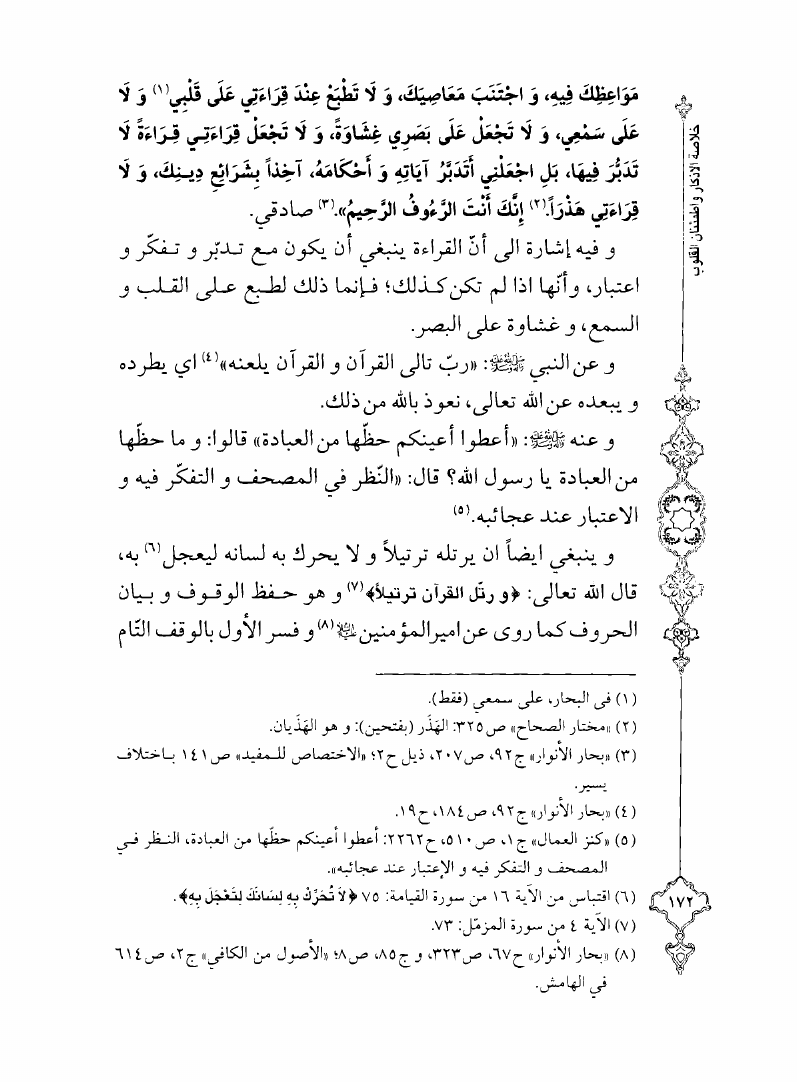 مَوَاعِظِكَ فِيهِ، وَ اجْتَنَبَ مَعَاصِيَكَ، وَ لَا تَطْبَعْ عِنْدَ قِرَاءَتِي عَلَى قَلْبِي(١) وَ لَا
عَلَى سَمْعِي، وَ لَا تَجْعَلْ عَلَى بَصَرِي غِشَاوَةً، وَ لَا تَجْعَلْ قِرَاءَتِي قِرَاءَةً لَا
تَدَبُّرَ فِيهَا، بَلِ اجْعَلْنِي أَتَدَبَّرُ آيَاتِهِ وَ أَحْكَامَهُ، آخِذاً بِشَرَائِعِ دِينِكَ، وَ لَا
قِرَاءَتِي هَذْرَاً.(٢) إِنَّكَ أَنْتَ الرَّءُوفُ الرَّحِيمُ».(٣) صادقي.
و فيه إشارة الى أنّ القراءة ينبغي أن يكون مع تدبّر و تفكّر و
اعتبار، وأنّها اذا لم تكن كذلك؛ فإنما ذلك لطبع على القلب و
السمع، و غشاوة على البصر.
و عن النبي ﷺ: «ربّ تالى القرآن و القرآن يلعنه»(٤) اي يطرده
و يبعده عن الله تعالى، نعوذ بالله من ذلك.
و عنه ﷺ: «أعطوا أعينكم حظّها من العبادة» قالوا: و ما حظّها
من العبادة يا رسول الله؟ قال: «النّظر في المصحف و التفكّر فيه و
الاعتبار عند عجائبه.(٥)
و ينبغي ايضاً ان يرتله ترتيلاً و لا يحرك به لسانه ليعجل(٦) به،
قال الله تعالى: ﴿و رتّل القرآن ترتيلاً﴾(٧) و هو حفظ الوقوف و بيان
الحروف كما روى عن اميرالمؤمنين ؑ(٨) و فسر الأول بالوقف التّام
(١) فى البحار، على سمعي (فقط).
(٢) «مختار الصحاح» ص٣٢٥: الهَذَر (بفتحين): و هو الهَذَيان.
(٣) «بحار الأنوار» ج٩٢، ص٢٠٧، ذيل ح٢؛ «الاختصاص للمفيد» ص١٤١ باختلاف
يسير.
(٤) «بحار الأنوار» ج٩٢، ص١٨٤، ح١٩.
(٥) «كنز العمال» ج١، ص٥١٠، ح٢٢٦٢: أعطوا أعينكم حظّها من العبادة، النظر في
المصحف و التفكر فيه و الإعتبار عند عجائبه».
(٦) اقتباس من الآية ١٦ من سورة القيامة: ٧٥ ﴿لاَ تُحَرِّكْ بِهِ لِسَانَكَ لِتَعْجَلَ بِهِ﴾.
(٧) الآية ٤ من سورة المزمّل: ٧٣.
(٨) «بحار الأنوار» ح٦٧، ص٣٢٣، و ج٨٥، ص٨؛ «الأصول من الكافي» ج٢، ص٦١٤
في الهامش.
خلاصة الاذكار و اطمئنان القلوب
١٧٢